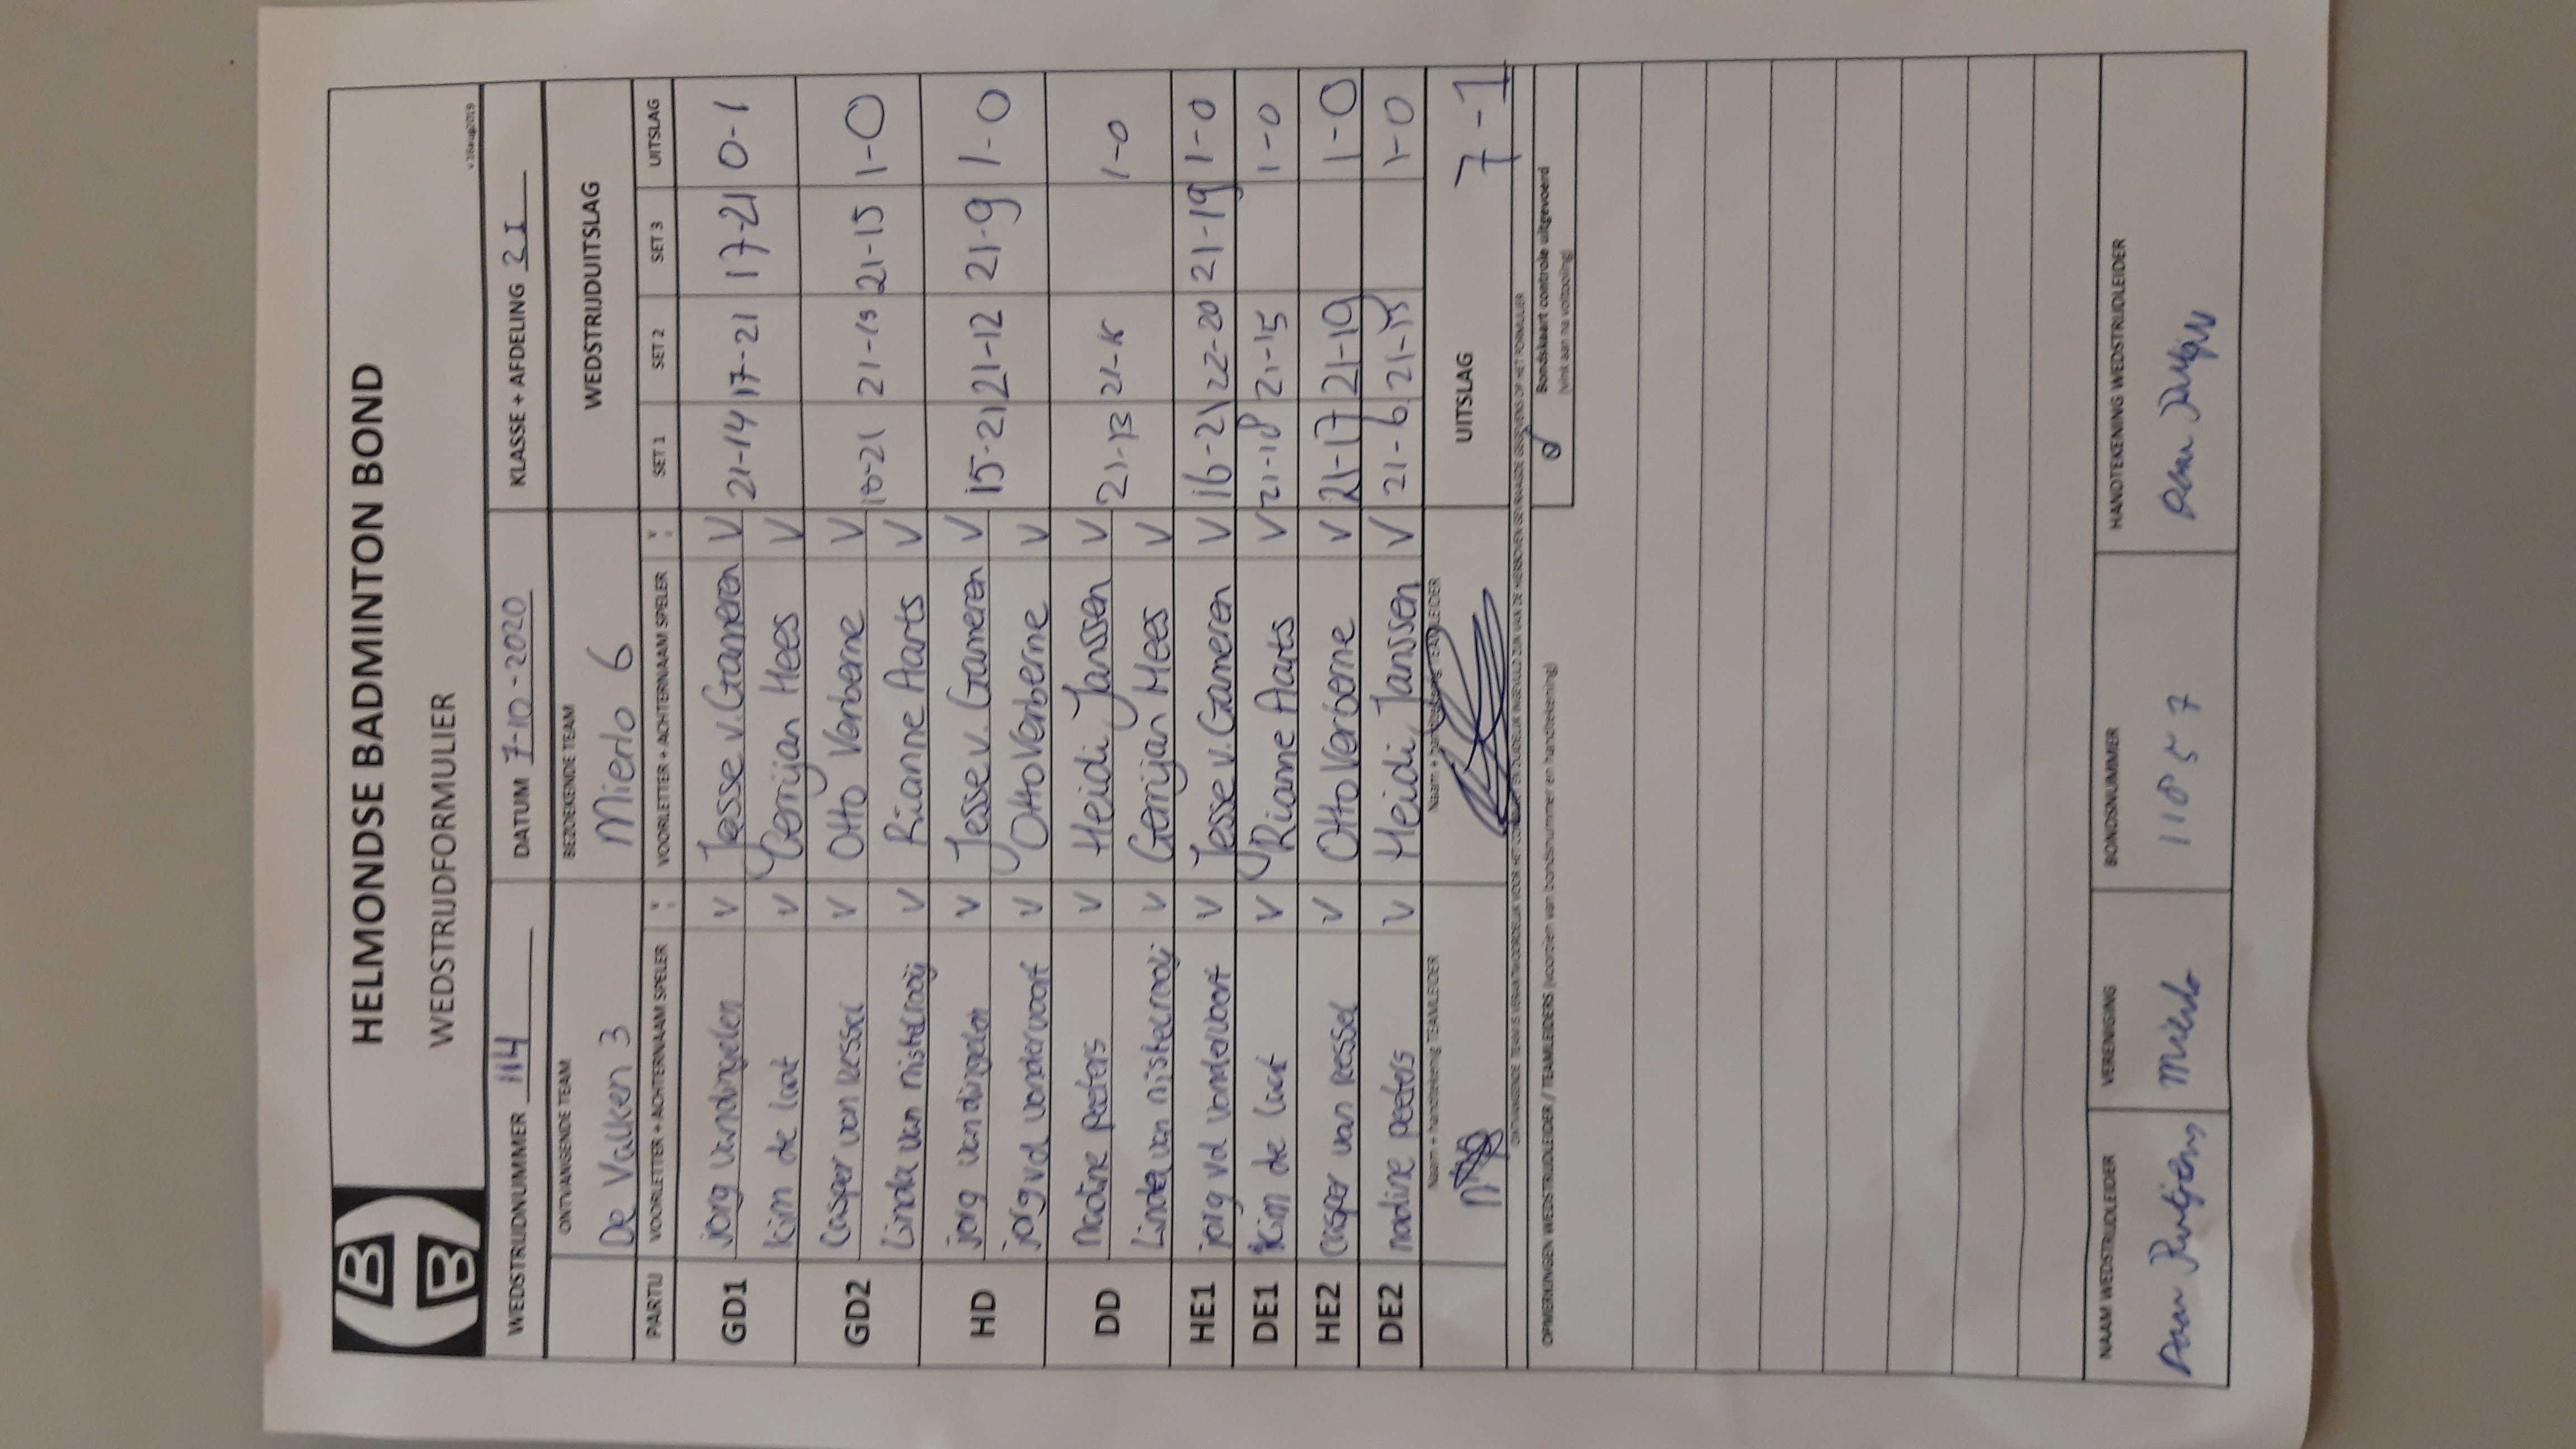 HELMONDSE BADMINTON BOND
WEDSTRIJDFORMULIER
v.18aug2019
WEDSTRIJDNUMMER 114 DATUM 7-10-2020 KLASSE + AFDELING 2I
ONTVANGENDE TEAM BEZOEKENDE TEAM WEDSTRIJDUITSLAG
De Valken 3 Mierlo 6
PARTIJ VOORLETTER + ACHTERNAAM SPELER V VOORLETTER + ACHTERNAAM SPELER V SET 1 SET 2 SET 3 UITSLAG
GD1 jorg vandingelen V Jesse v. Gameren V 21-14 17-21 17-21 0-1
kim de laat V Gerrijan Hees V
GD2 Casper van Kessel V Otto Verberne V 18-21 21-19 21-15 1-0
Linda van nistelrooij V Rianne Aarts V
HD jorg van dingelen V Jesse v. Gameren V 15-21 21-12 21-9 1-0
jorg vd vondervoort V Otto Verberne V
DD Nadine peeters V Heidi Janssen V 21-13 21-15 1-0
Linda van nistelrooij V Gerrijan Hees V
HE1 jorg vd vondervoort V Jesse v. Gameren V 16-21 22-20 21-19 1-0
DE1 Kim de laat V Rianne Aarts V 21-18 21-15 1-0
HE2 casper van kessel V Otto Verberne V 21-17 21-19 1-0
DE2 nadine peeters V Heidi Janssen V 21-6 21-15 1-0
Naam + handtekening TEAMLEIDER Naam + handtekening TEAMLEIDER UITSLAG 7-1
ONTVANGENDE TEAM IS VERANTWOORDELIJK VOOR HET EN DUIDELIJK INGEVULD ZIJN VAN DE HIERBOVEN GEVRAAGDE GEGEVENS OP HET FORMULIER
OPMERKINGEN WEDSTRIJDLEIDER / TEAMLEIDERS (voorzien van bondsnummer en handtekening) Bondskaart controle uitgevoerd
(vink aan na voltooiing)
NAAM WEDSTRIJDLEIDER VERENIGING BONDSNUMMER HANDTEKENING WEDSTRIJDLEIDER
Daan Mierlo 11857 Daan